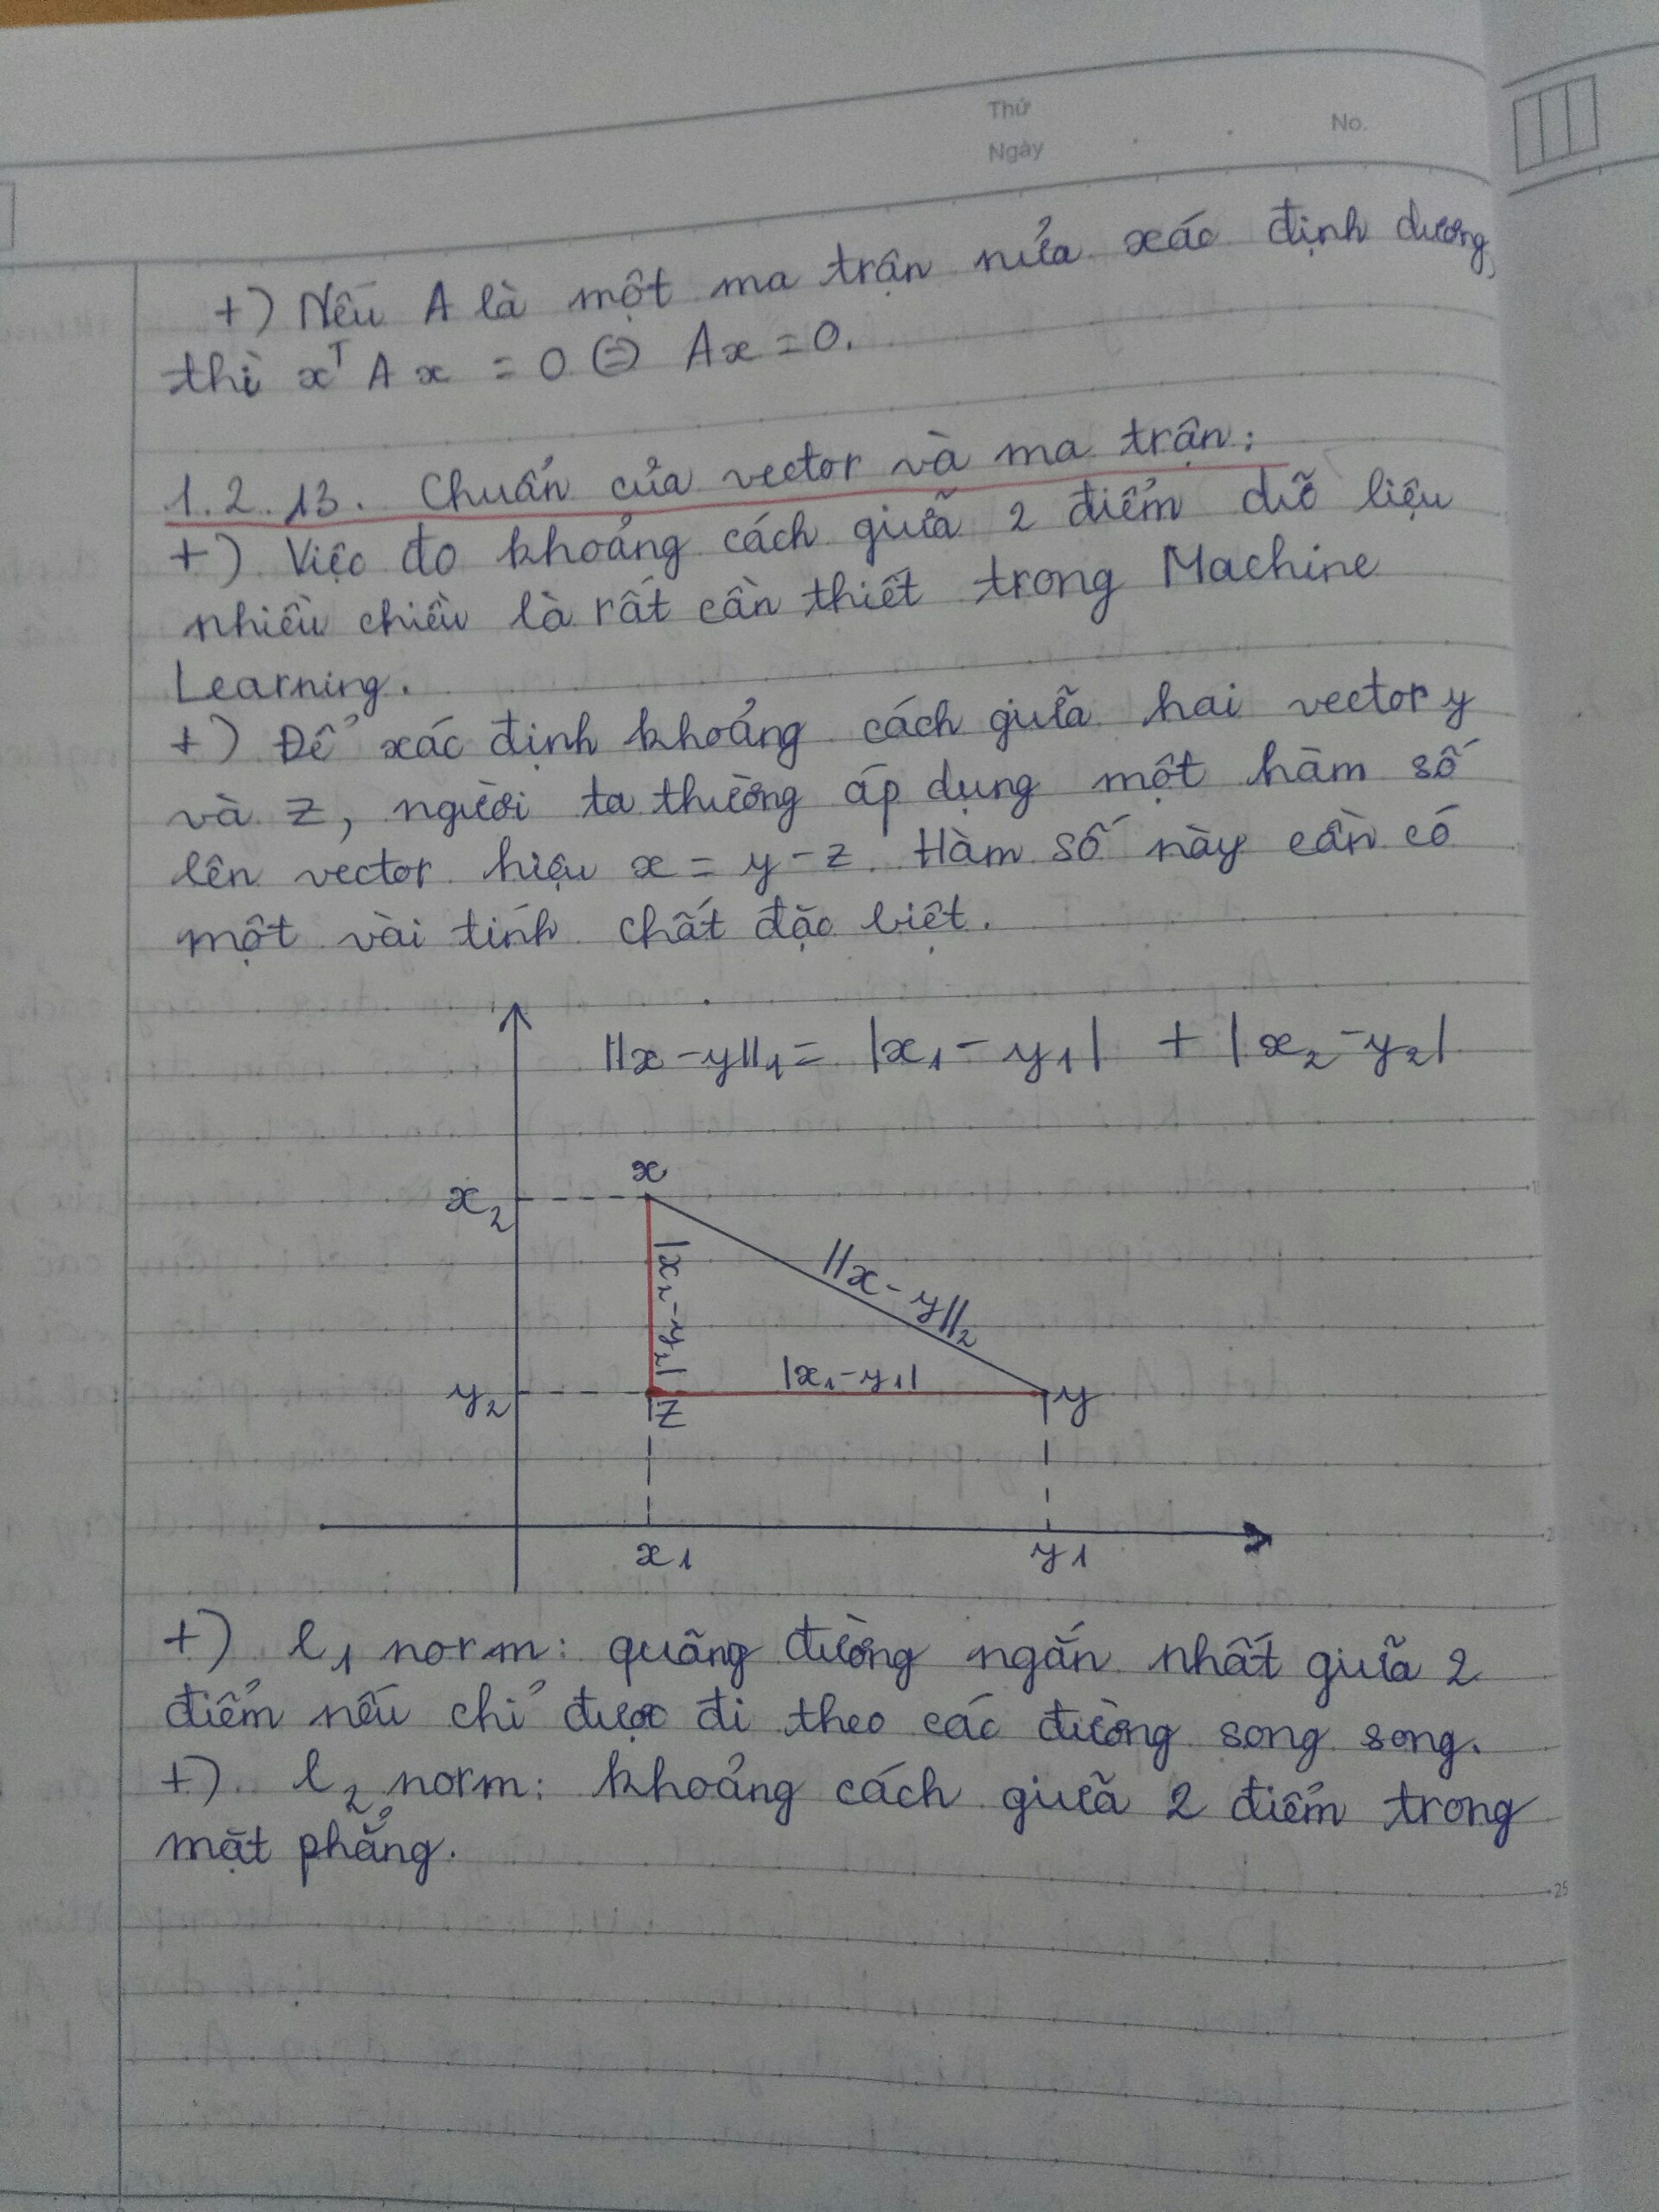 Thứ
Ngày
No.
+) Nếu A là một ma trận nửa xác định dương,
thì xᵀ A x = 0 ⇔ Ax = 0.
1.2.13. Chuẩn của vector và ma trận:
+) Việc đo khoảng cách giữa 2 điểm dữ liệu
nhiều chiều là rất cần thiết trong Machine
Learning.
+) Để xác định khoảng cách giữa hai vector y
và z, người ta thường áp dụng một hàm số
lên vector hiệu x = y - z. Hàm số này cần có
một vài tính chất đặc biệt.
||x - y||₁ = |x₁ - y₁| + |x₂ - y₂|
x
x₂
|x₂ - y₂|
||x - y||₂
|x₁ - y₁|
y₂
z
y
x₁
y₁
+) l₁ norm: quãng đường ngắn nhất giữa 2
điểm nếu chỉ được đi theo các đường song song.
+) l₂ norm: khoảng cách giữa 2 điểm trong
mặt phẳng.
25